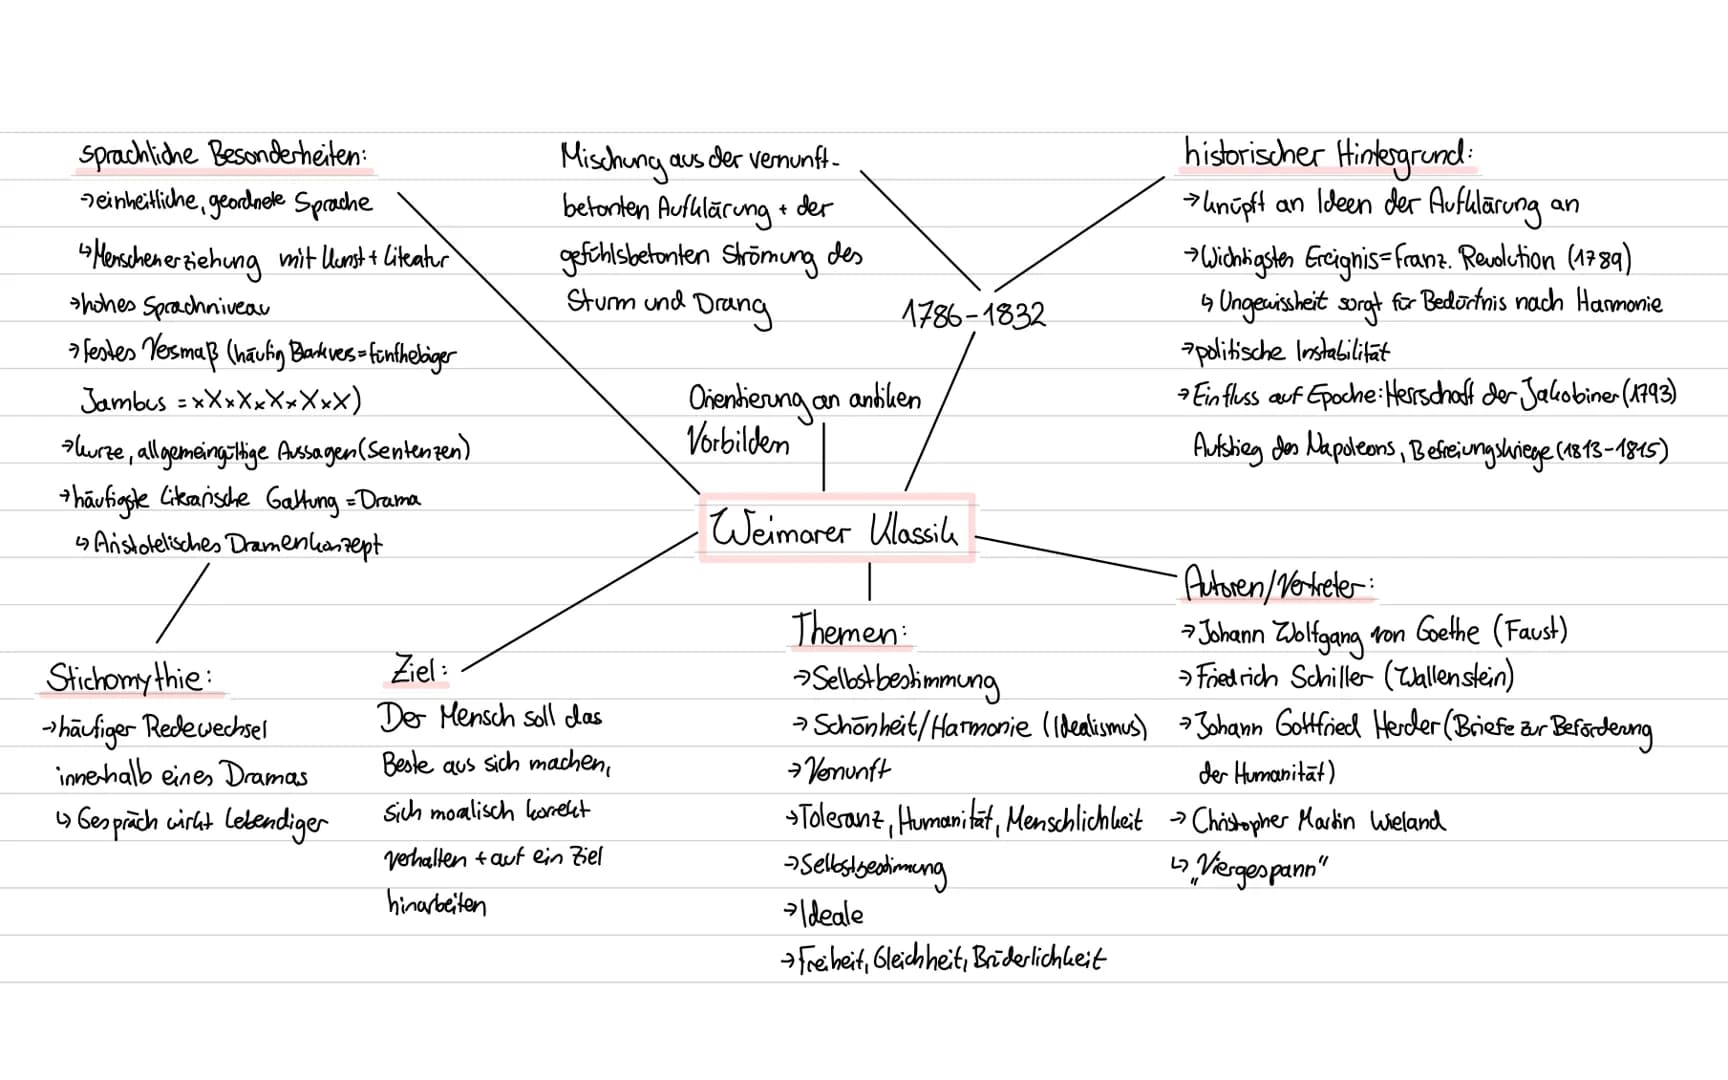 sprachliche Besonderheiten:
→einheitliche, geordnete Sprache
↳Menschenerziehung mit Kunst + Literatur
→hohes Sprachniveau
→festes Versmaß (häufig Blankvers=fünfhebiger
Jambus = xXxXxXxXxX)
→kurze, allgemeingültige Aussagen (Sentenzen)
→häufigste literarische Gattung = Drama
↳ Aristotelisches Dramenkonzept
Stichomythie:
→häufiger Redewechsel
innerhalb eines Dramas
↳ Gespräch wirkt lebendiger
Mischung aus der vernunft-
betonten Aufklärung + der
gefühlsbetonten Strömung des
Sturm und Drang
1786-1832
Orientierung an antiken
Vorbildern
Weimarer Klassik
historischer Hintergrund:
→knüpft an Ideen der Aufklärung an
→Wichtigsten Ereignis=Franz. Revolution (1789)
↳ Ungewissheit sorgt für Bedürfnis nach Harmonie
→politische Instabilität
→Einfluss auf Epoche: Herrschaft der Jakobiner (1793)
Aufstieg des Napoleons, Befreiungskriege (1813-1815)
Ziel:
Der Mensch soll das
Beste aus sich machen,
sich moralisch korrekt
verhalten + auf ein Ziel
hinarbeiten
Themen:
→Selbstbestimmung
→Schönheit/Harmonie (Idealismus)
→Vernunft
→Toleranz, Humanität, Menschlichkeit
→Selbstbestimung
→Ideale
→Freiheit, Gleichheit, Brüderlichkeit
Autoren/Vertreter:
→Johann Wolfgang von Goethe (Faust)
→Friedrich Schiller (Wallenstein)
→Johann Gottfried Herder (Briefe zur Beförderung
der Humanität)
→ Christopher Martin Wieland
↳ „Viergespann"